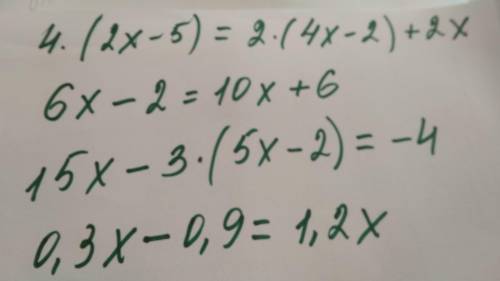 4·(2x-5)=2·(4x-2)+2x
6x-2=10x+6
15x-3·(5x-2)=-4
0,3x-0,9=1,2x